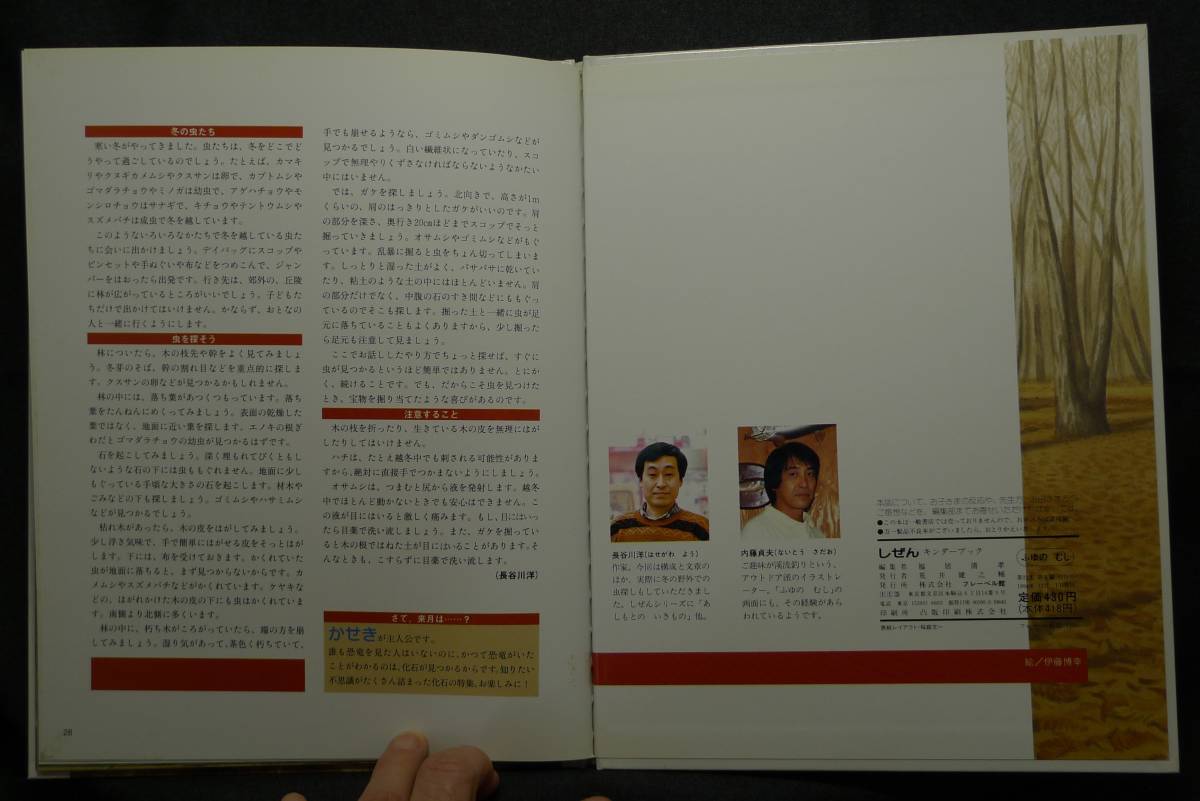 冬の虫たち
寒い冬がやってきました。虫たちは、冬をどこでど
うやって過ごしているのでしょう。たとえば、カマキ
リやクヌギカメムシやクスサンは卵で、カブトムシや
ゴマダラチョウやミノガは幼虫で、アゲハチョウやモ
ンシロチョウはサナギで、キチョウやテントウムシや
スズメバチは成虫で冬を越しています。
このようないろいろなかたちで冬を越している虫た
ちに会いに出かけましょう。デイバッグにスコップや
ピンセットや手ぬぐいや布などをつめこんで、ジャン
パーをはおったら出発です。行き先は、郊外の、丘陵
に林が広がっているところがいいでしょう。子どもた
ちだけで出かけてはいけません。かならず、おとなの
人と一緒に行くようにします。
虫を探そう
林についたら、木の枝先や幹をよく見てみましょ
う。冬芽のそば、幹の割れ目などを重点的に探しま
す。クスサンの卵などが見つかるかもしれません。
林の中には、落ち葉があつくつもっています。落ち
葉をたんねんにめくってみましょう。表面の乾燥した
葉ではなく、地面に近い葉を探します。エノキの根ぎ
わだとゴマダラチョウの幼虫が見つかるはずです。
石を起こしてみましょう。深く埋もれてびくともし
ないような石の下には虫ももぐれません。地面に少し
もぐっている手頃な大きさの石を起こします。材木や
ごみなどの下も探しましょう。ゴミムシやハサミムシ
などが見つかるでしょう。
枯れ木があったら、木の皮をはがしてみましょう。
少し浮き気味で、手で簡単にはがせる皮をそっとはが
します。下には、布を受けておきます。かくれていた
虫が地面に落ちると、まず見つからないからです。カ
メムシやスズメバチなどがかくれています。ケヤキな
どの、はがれかけた木の皮の下にも虫はかくれていま
す。南側より北側に多くいます。
林の中に、朽ち木がころがっていたら、端の方を崩
してみましょう。湿り気があって、茶色く朽ちていて、
手でも崩せるようなら、ゴミムシやダンゴムシなどが
見つかるでしょう。白い繊維状になっていたり、スコ
ップで無理やりくずさなければならないようなかたい
中にはいません。
では、ガケを探しましょう。北向きで、高さが1m
くらいの、肩のはっきりとしたガケがいいのです。肩
の部分を深さ、奥行き20cmほどまでスコップでそっと
掘っていきましょう。オサムシやゴミムシなどがもぐ
っています。乱暴に掘ると虫をちょん切ってしまいま
す。しっとりと湿った土がよく、パサパサに乾いてい
たり、粘土のような土の中にはほとんどいません。肩
の部分だけでなく、中腹の石のすき間などにももぐっ
ているのでそこも探します。掘った土と一緒に虫が足
元に落ちていることもよくありますから、少し掘った
ら足元も注意して見ましょう。
ここでお話ししたやり方でちょっと探せば、すぐに
虫が見つかるというほど簡単ではありません。とにか
く、続けることです。でも、だからこそ虫を見つけた
とき、宝物を掘り当てたような喜びがあるのです。
注意すること
木の枝を折ったり、生きている木の皮を無理にはが
したりしてはいけません。
ハチは、たとえ越冬中でも刺される可能性がありま
すから、絶対に直接手でつかまないようにしましょう。
オサムシは、つまむと尻から液を発射します。越冬
中でほとんど動かないときでも安心はできません。こ
の液が目にはいると激しく痛みます。もし、目にはいっ
たら目薬で洗い流しましょう。また、ガケを掘ってい
ると木の根ではねた土が目にはいることがあります。そ
んなときも、こすらずに目薬で洗い流します。
(長谷川洋)
さて、来月は……?
かせきが主人公です。
誰も恐竜を見た人はいないのに、かつて恐竜がいた
ことがわかるのは、化石が見つかるからです。知りたい
不思議がたくさん詰まった化石の特集、お楽しみに!
28
長谷川洋(はせがわ よう)
作家。今回は構成と文章の
ほか、実際に冬の野外での
虫探しもしていただきまし
た。しぜんシリーズに「あ
しもとの いきもの」他。
内藤貞夫(ないとう さだお)
ご趣味が渓流釣りという、
アウトドア派のイラストレ
ーター。「ふゆの むし」の
画面にも、その経験があら
われているようです。
しぜん キンダーブック
ふゆの むし
発行所 株式会社 フレーベル館
定価430円
(本体418円)
絵/伊藤博幸